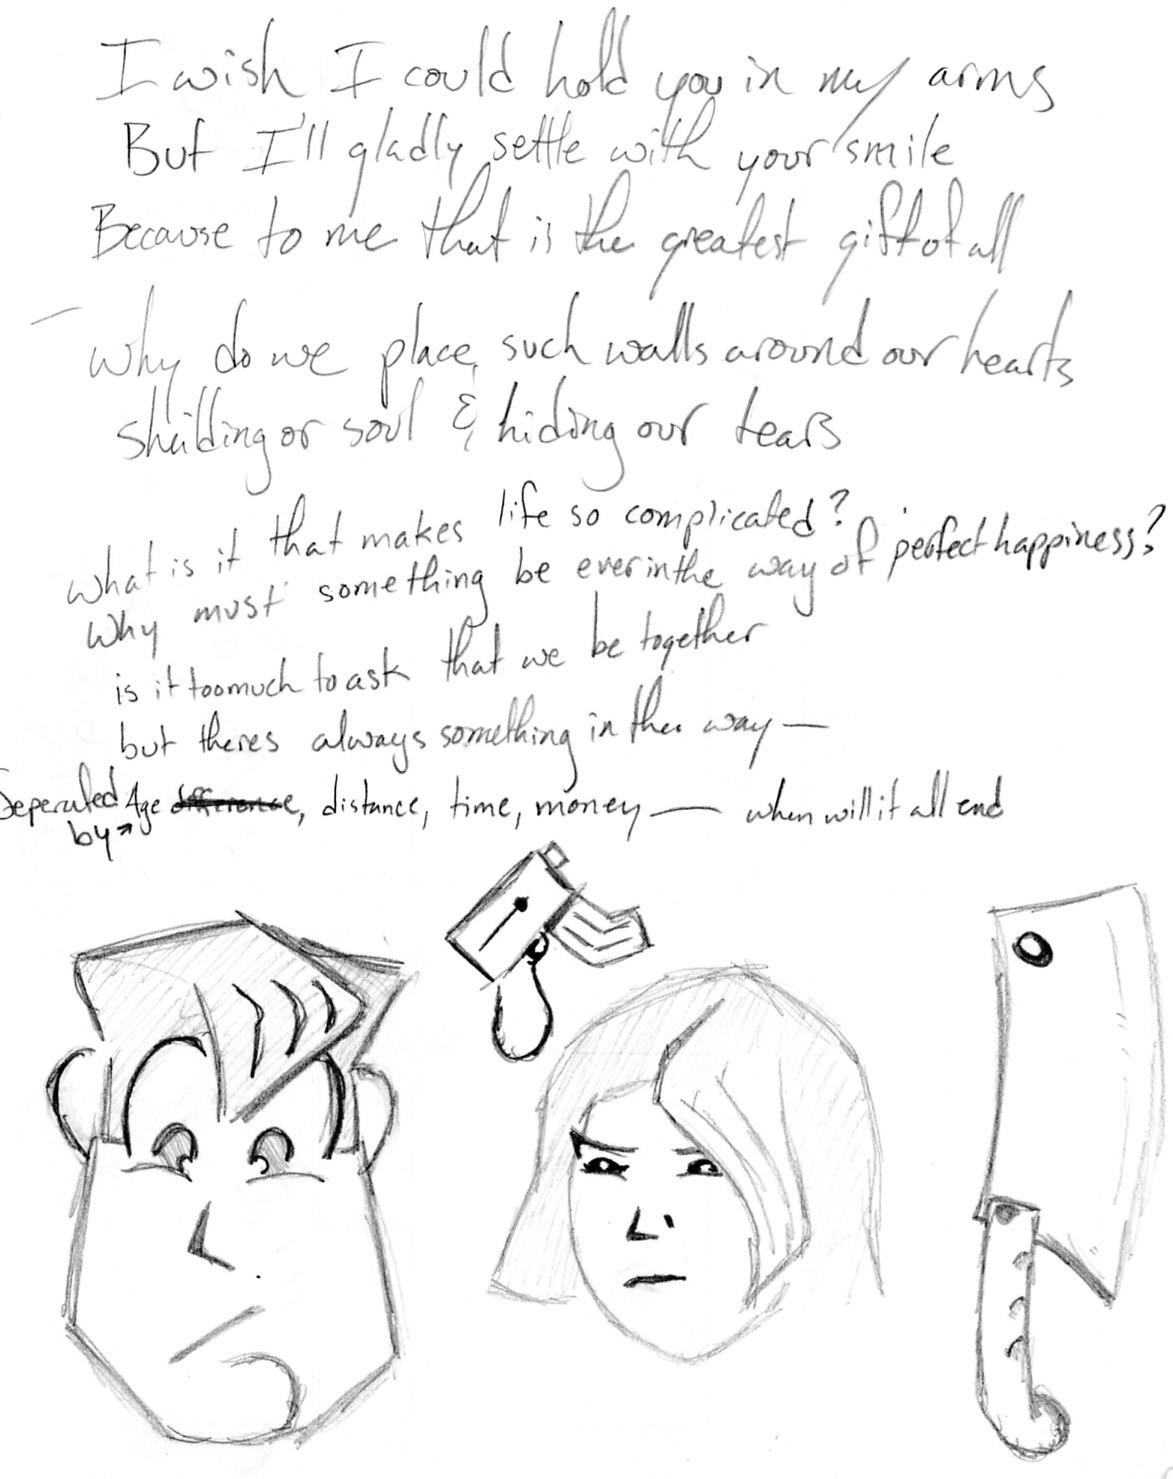 I wish I could hold you in my arms
But I'll gladly settle with your smile
Because to me that is the greatest gift of all
why do we place such walls around our hearts
sheilding or soul & hiding our tears
what is it that makes life so complicated?
why must something be ever in the way of perfect happiness?
is it too much to ask that we be together
but theres always something in thee way —
Seperated by → Age difference, distance, time, money — when will it all end